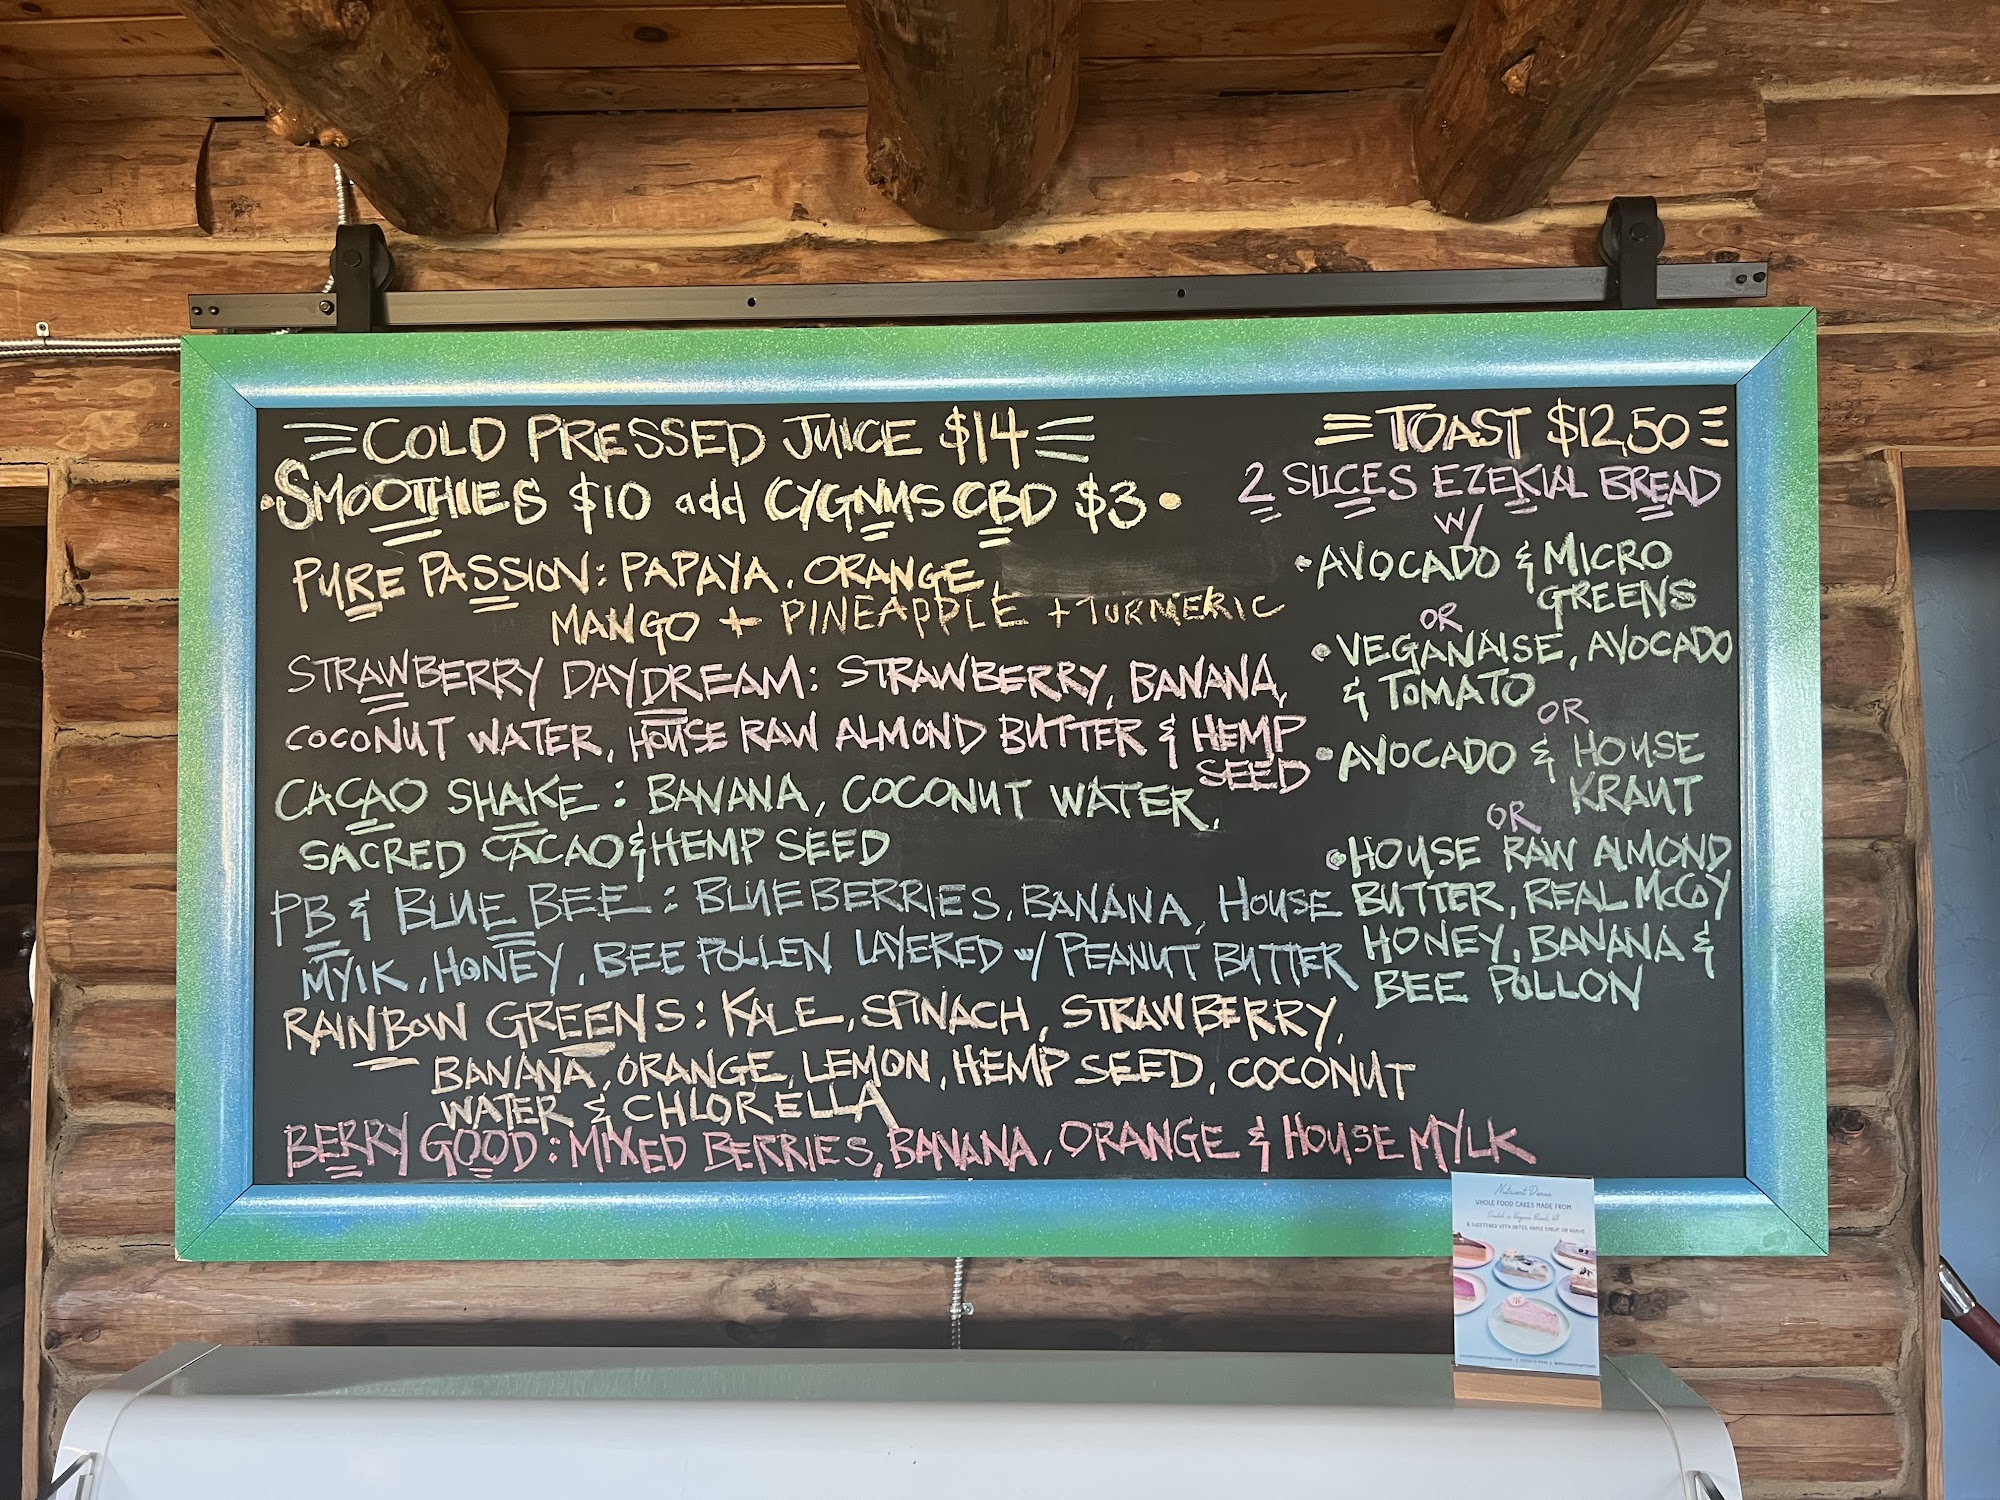 COLD PRESSED JUICE $14
SMOOTHIES $10 add CYGNUS CBD $3
PURE PASSION: PAPAYA, ORANGE,
MANGO + PINEAPPLE + TURMERIC
STRAWBERRY DAYDREAM: STRAWBERRY, BANANA,
COCONUT WATER, HOUSE RAW ALMOND BUTTER & HEMP
SEED
CACAO SHAKE: BANANA, COCONUT WATER,
SACRED CACAO & HEMP SEED
PB & BLUE BEE: BLUEBERRIES, BANANA, HOUSE
MYLK, HONEY, BEE POLLEN LAYERED w/ PEANUT BUTTER
RAINBOW GREENS: KALE, SPINACH, STRAWBERRY,
BANANA, ORANGE, LEMON, HEMP SEED, COCONUT
WATER & CHLORELLA
BERRY GOOD: MIXED BERRIES, BANANA, ORANGE & HOUSE MYLK
TOAST $12.50
2 SLICES EZEKIAL BREAD
W/
• AVOCADO & MICRO
GREENS
OR
• VEGANAISE, AVOCADO
& TOMATO
OR
• AVOCADO & HOUSE
KRAUT
OR
• HOUSE RAW ALMOND
BUTTER, REAL McCOY
HONEY, BANANA &
BEE POLLON
Nutrient Dense
WHOLE FOOD CAKES MADE FROM
& SWEETENED WITH DATES, MAPLE SYRUP, OR AGAVE